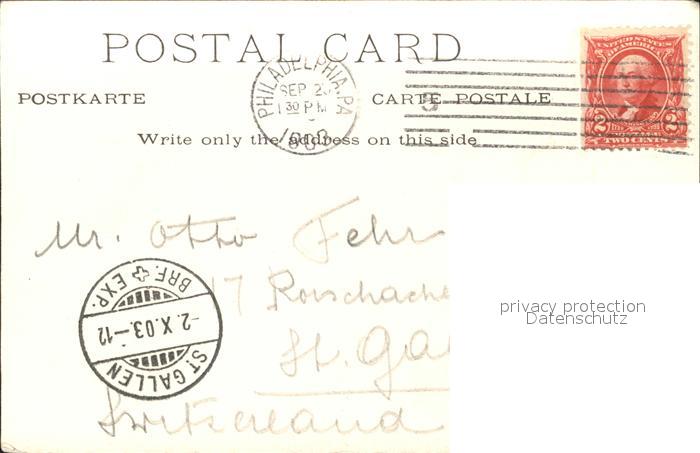 POSTAL CARD
POSTKARTE
CARTE POSTALE
Write only the address on this side
PHILADELPHIA, PA
SEP 2
1 30 PM
1903
3
UNITED STATES
OF AMERICA
2 2
TWO CENTS
Mr. Otto Fehr
17 Rorschache
St. Gal
Switzerland
BRF. EXP.
-2.X.03.-12
ST. GALLEN
privacy protection
Datenschutz